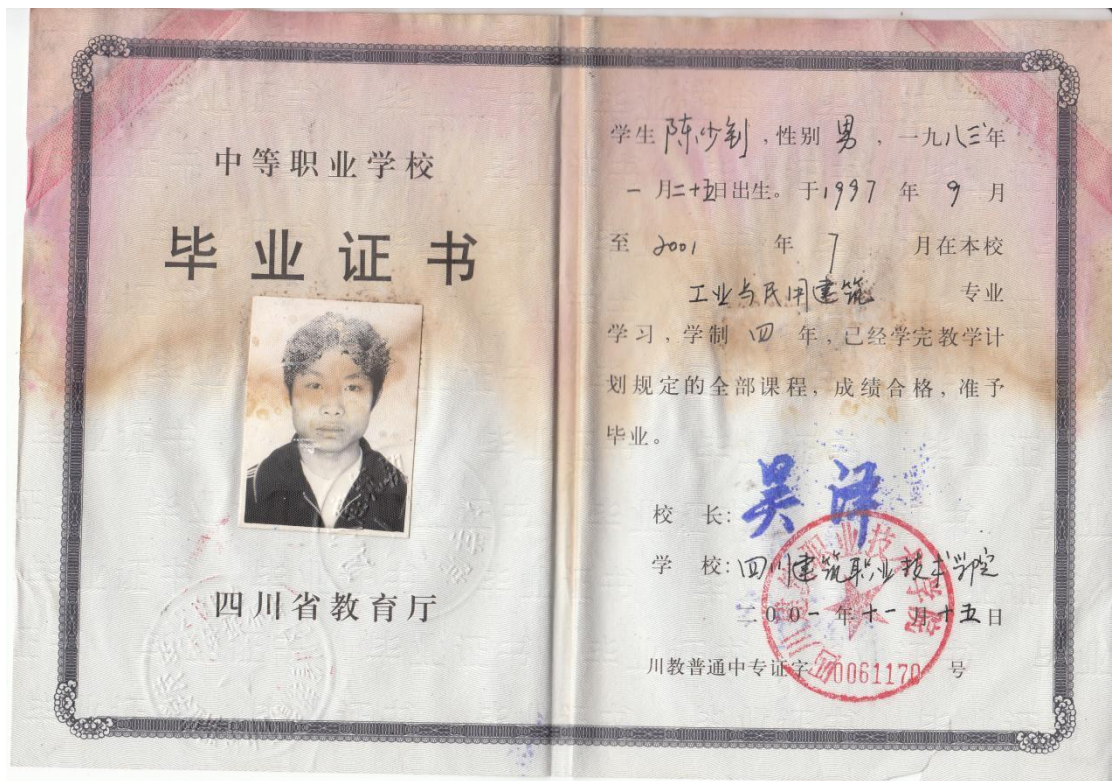 中等职业学校
毕业证书
四川省教育厅
学生陈少钊，性别 男 ，一九八三年
一月二十五日出生。于1997 年 9 月
至 2001 年 7 月在本校
工业与民用建筑 专业
学习，学制 四 年，已经学完教学计
划规定的全部课程，成绩合格，准予
毕业。
校 长：吴泽
学 校：四川建筑职业技术学院
二00一年十一月十五日
川教普通中专证字 0061170 号
四川建筑职业技术学院